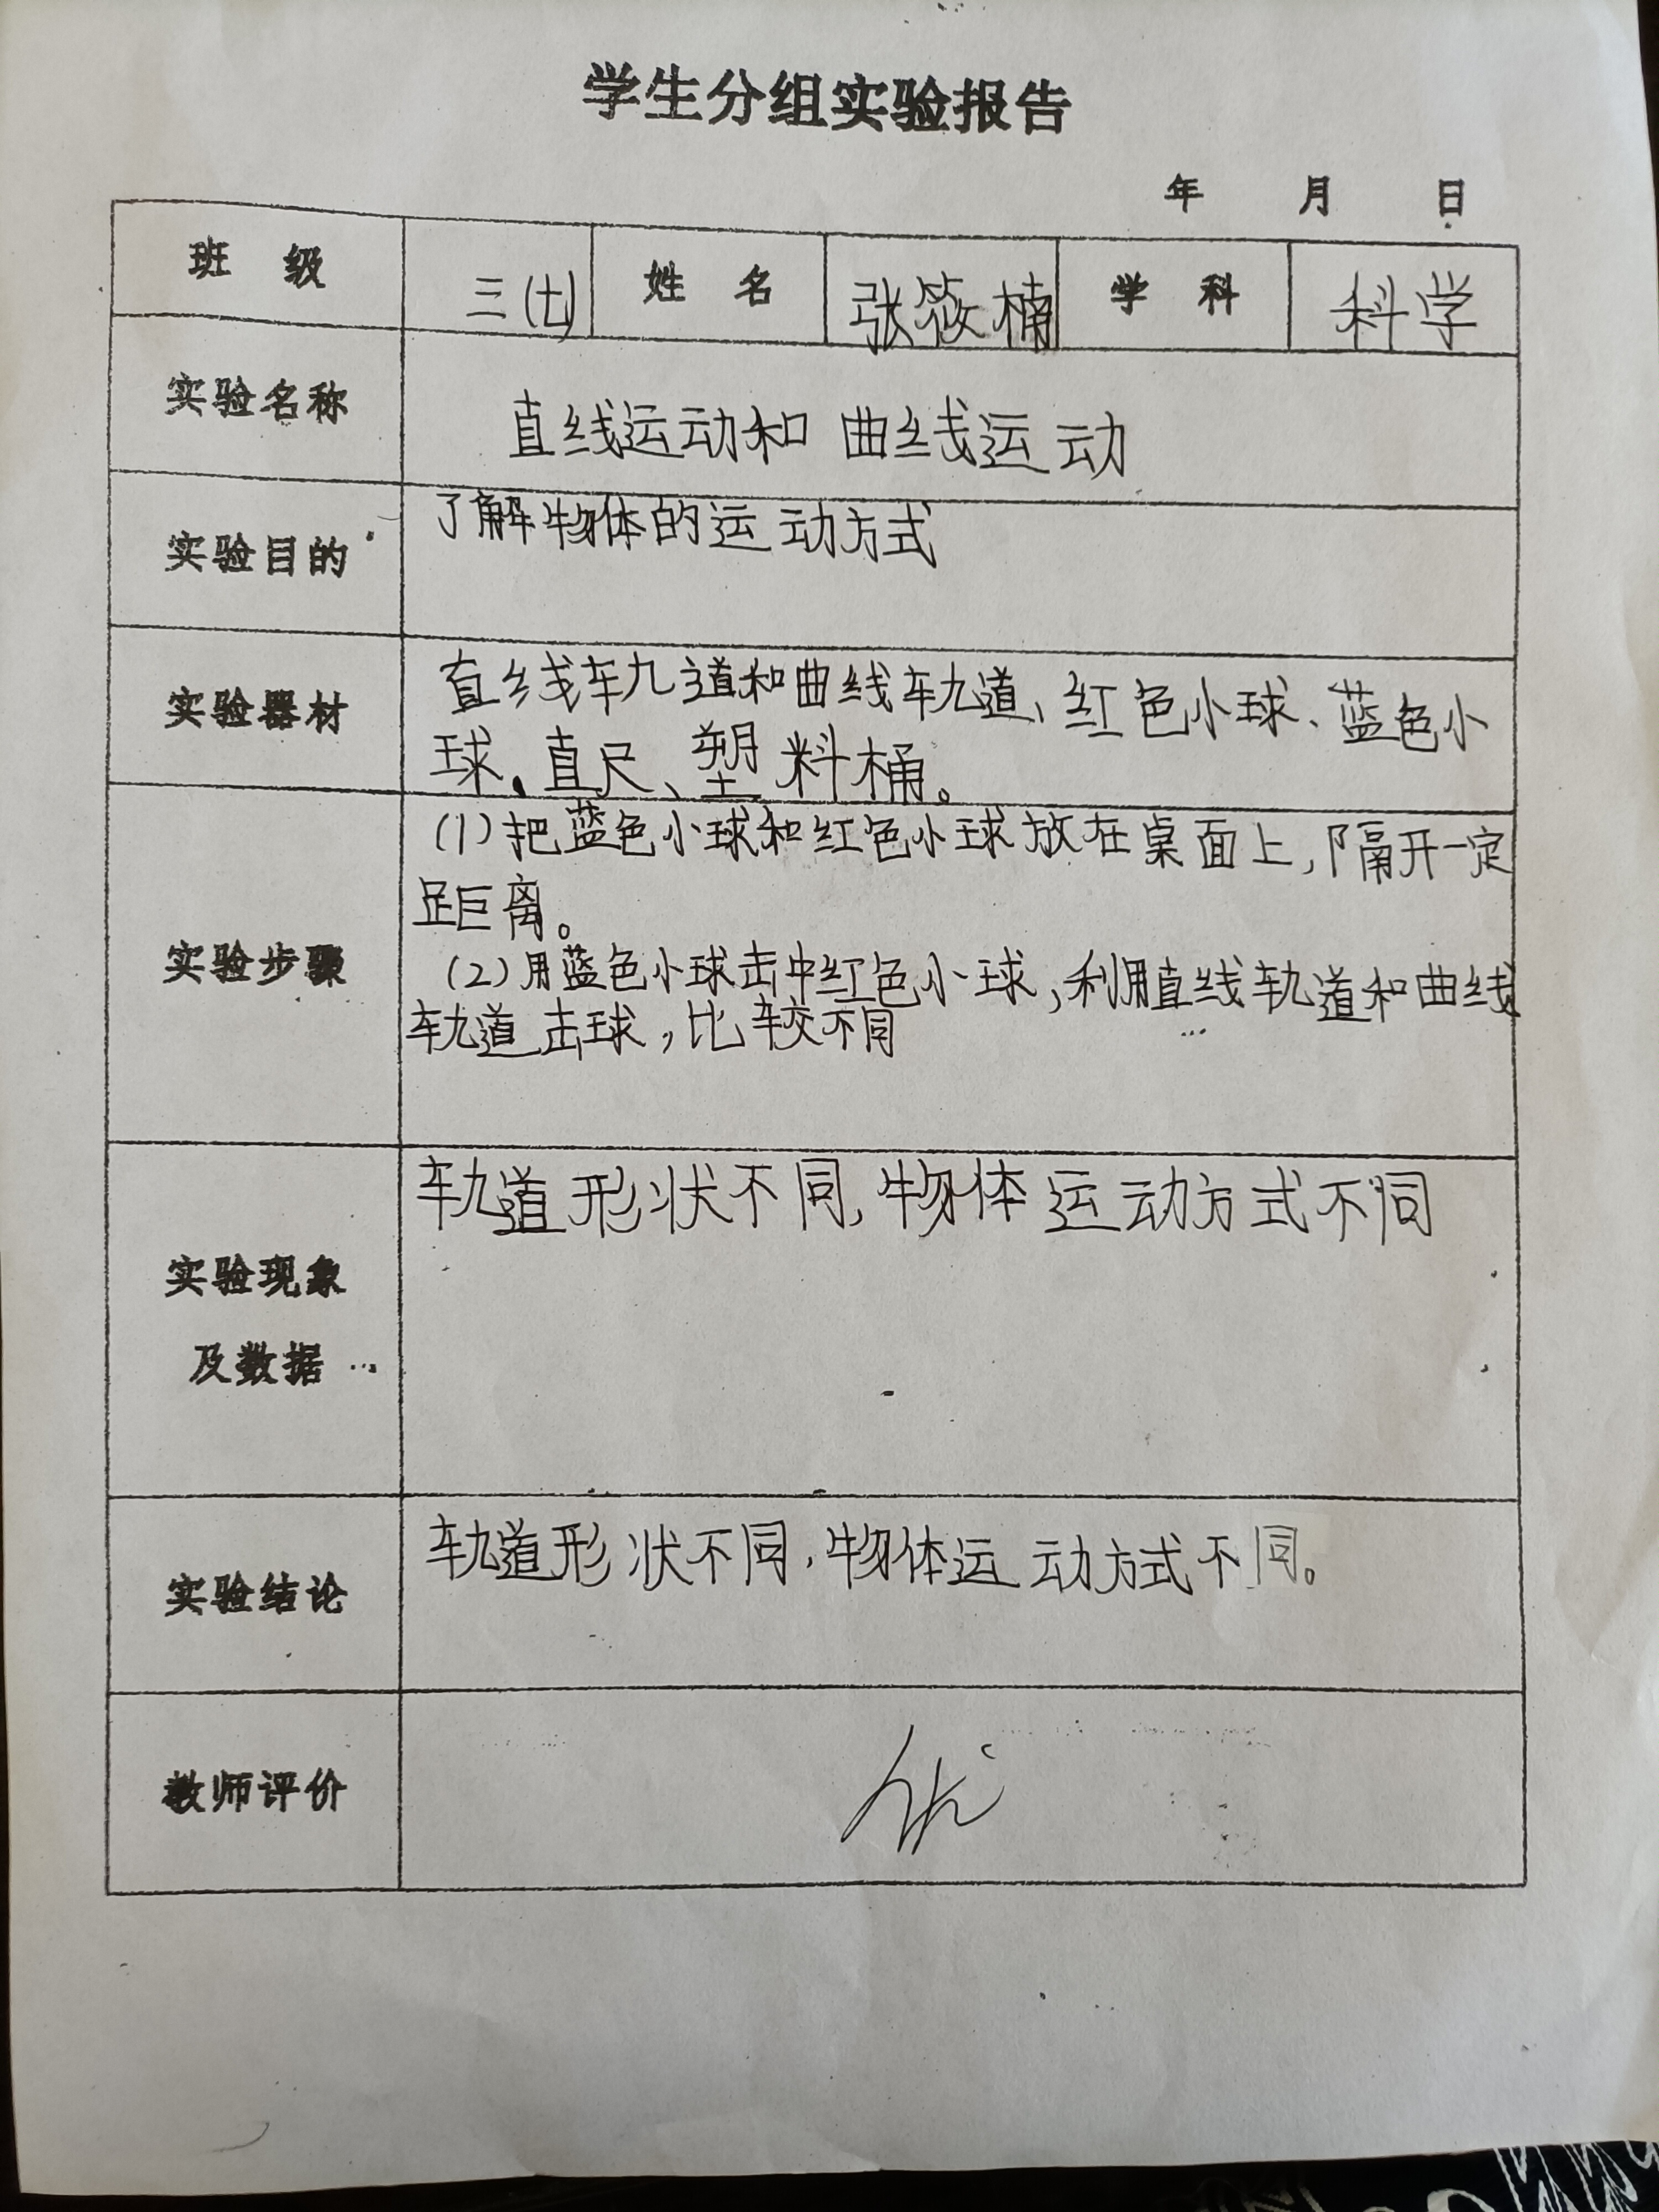 学生分组实验报告
年 月 日
班 级 三(七) 姓 名 张筱楠 学 科 科学
实验名称 直线运动和曲线运动
实验目的 了解物体的运动方式
实验器材 直线轨道和曲线轨道、红色小球、蓝色小
球、直尺、塑料桶。
(1)把蓝色小球和红色小球放在桌面上,隔开一定
距离。
实验步骤 (2)用蓝色小球击中红色小球,利用直线轨道和曲线
轨道击球,比较不同
轨道形状不同,物体运动方式不同
实验现象
及数据
实验结论 轨道形状不同,物体运动方式不同。
教师评价 优